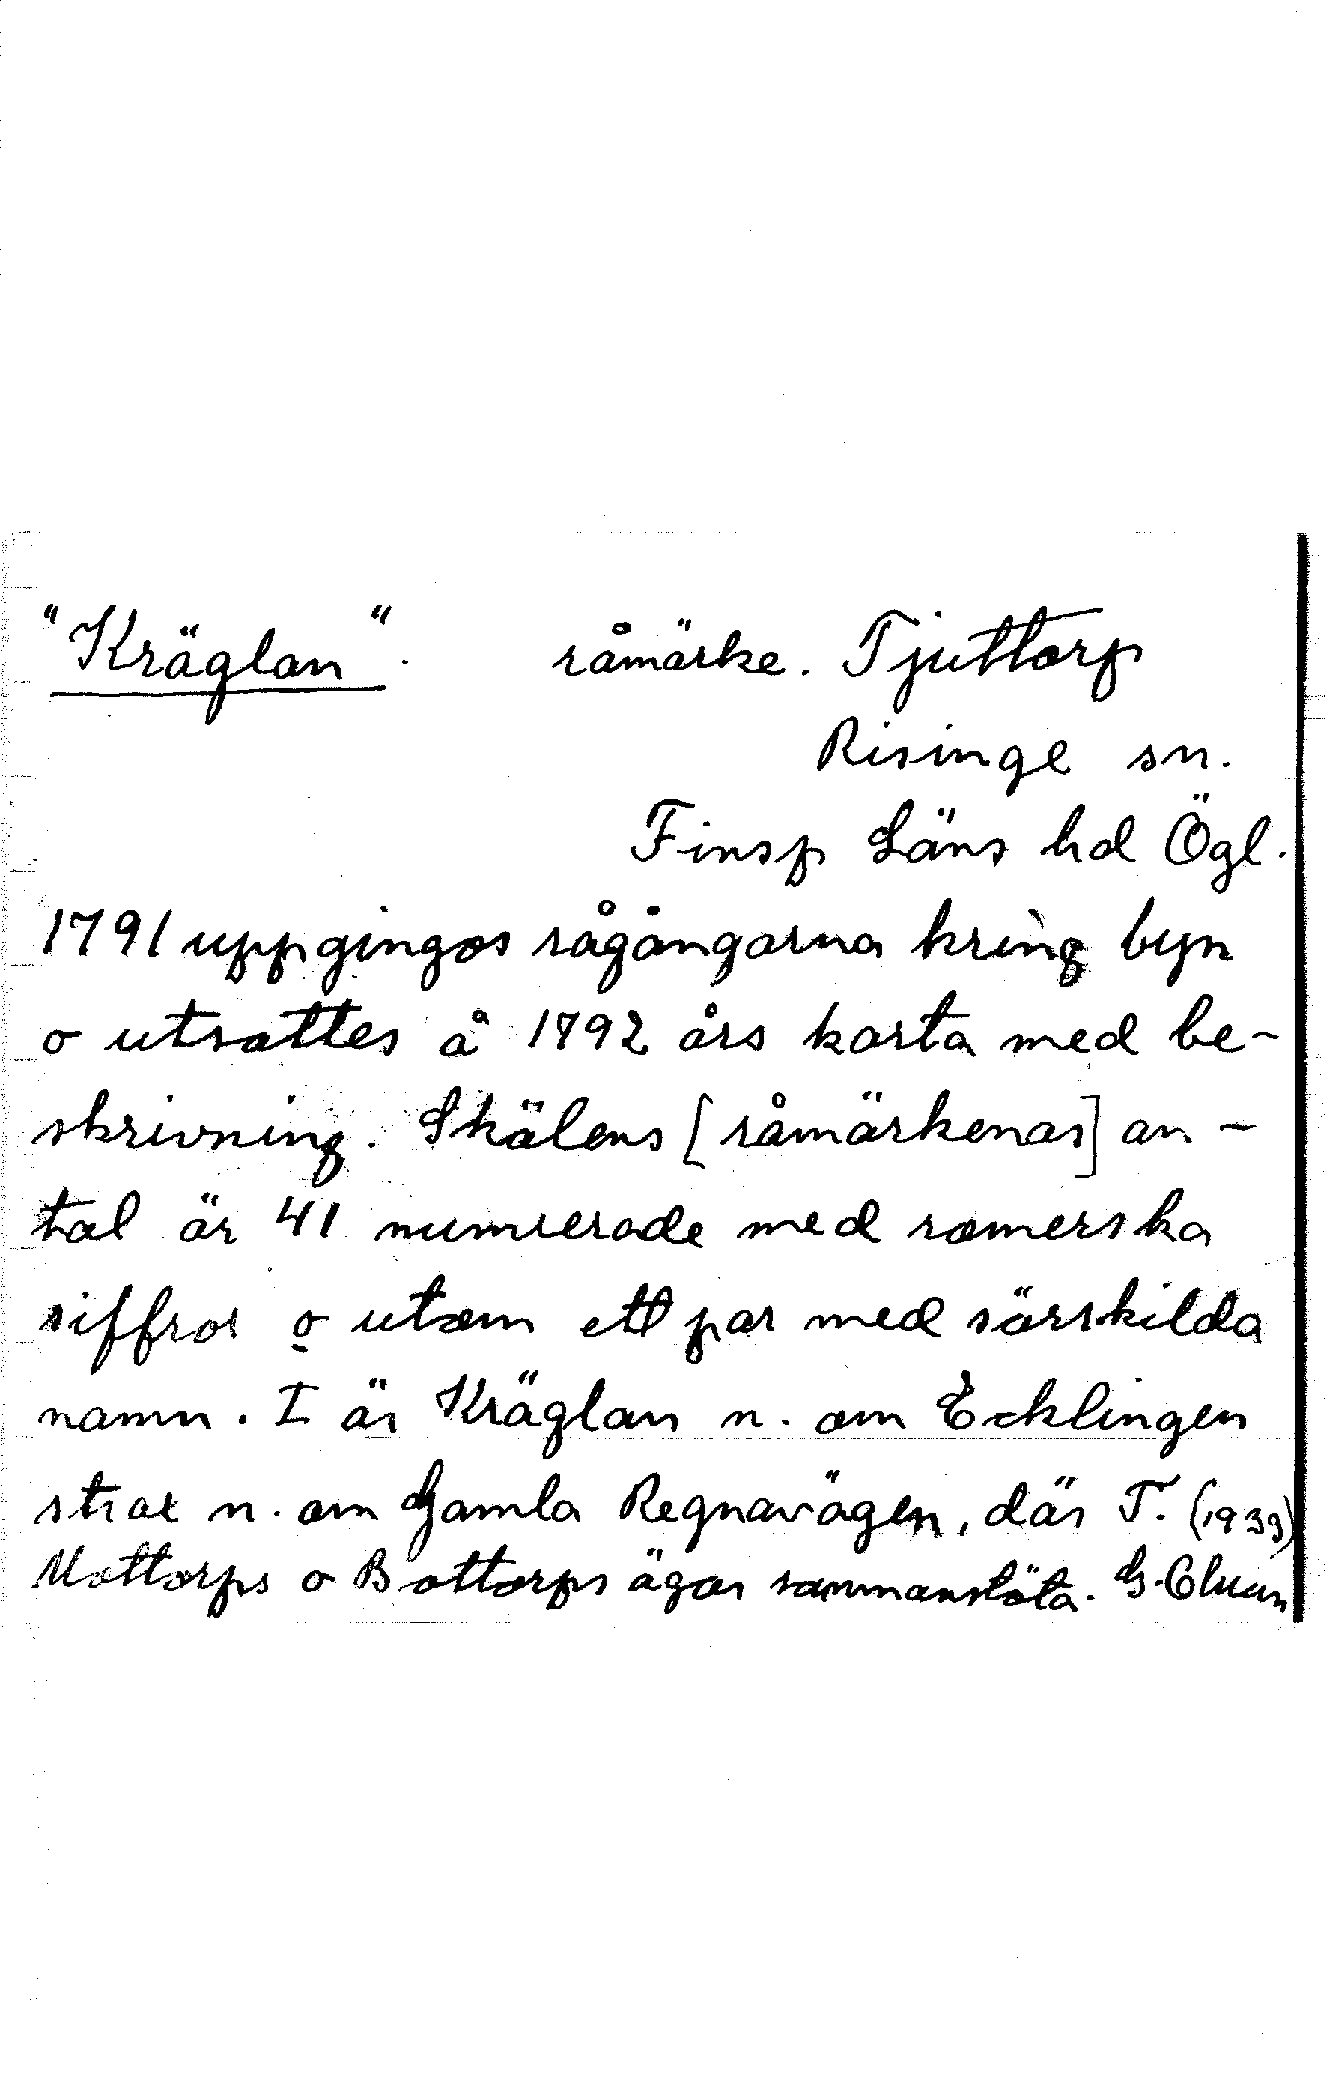 "Kräglan". råmärke. Tjuttorp
Risinge sn.
Finsp Läns hd Ögl.
1791 uppgingos rågångarna kring byn
o utsattes å 1792 års karta med be-
skrivning. Skälens [råmärkenas] an-
tal är 41 numrerade med romerska
siffror o utom ett par med särskilda
namn. I är Kräglan n. om Ecklingen
strax n. om Gamla Regnavägen, där T. (1933)
Mottorps o Bottorps ägor sammanstöta. G.